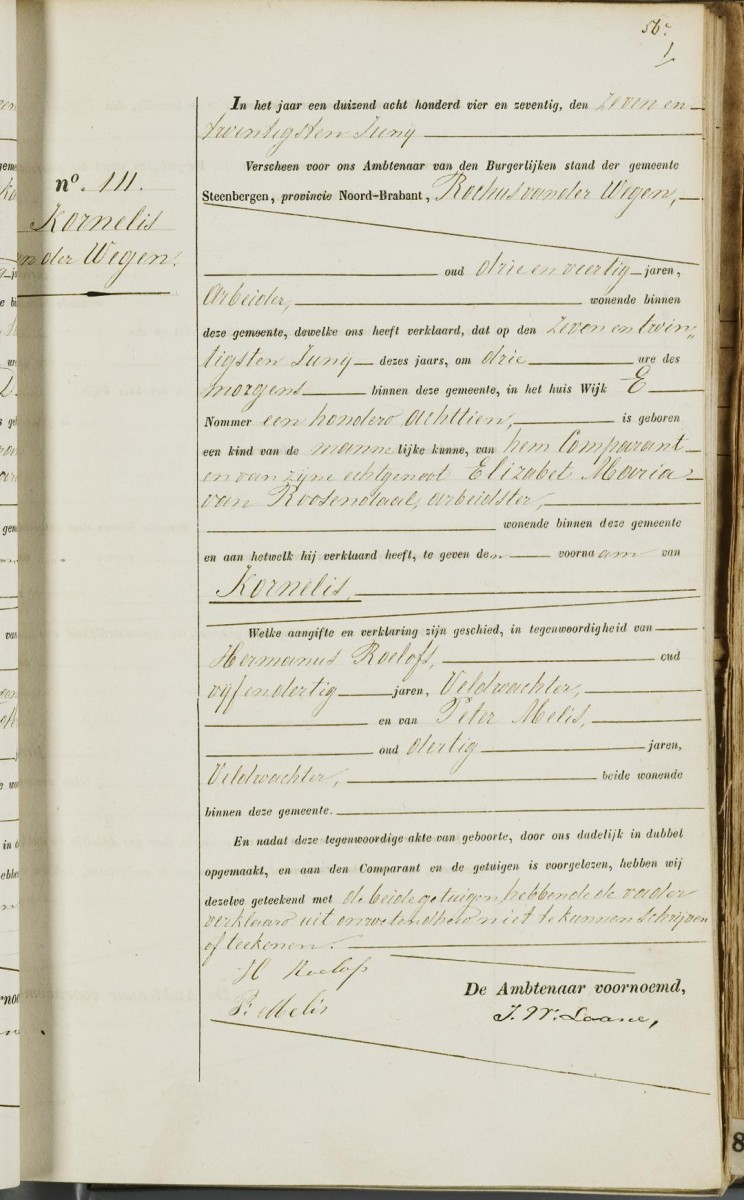 56e
1
nº. 111.
Kornelis
n der Wegen.
In het jaar een duizend acht honderd vier en zeventig, den zeven en
twintigsten Junij
Verscheen voor ons Ambtenaar van den Burgerlijken stand der gemeente
Steenbergen, provincie Noord-Brabant, Rochus van der Wegen,
oud drie en veertig jaren,
Arbeider, wonende binnen
deze gemeente, dewelke ons heeft verklaard, dat op den zeven en twin„
tigsten Junij dezes jaars, om drie ure des
morgens binnen deze gemeente, in het huis Wijk E
Nommer een honderd achttien, is geboren
een kind van de mannelijke kunne, van hem Comparant
en van zijne echtgenoot Elizabet Maria
van Roosendaal, arbeidster,
wonende binnen deze gemeente
en aan hetwelk hij verklaard heeft, te geven den voornaam van
Kornelis,
Welke aangifte en verklaring zijn geschied, in tegenwoordigheid van
Hermanus Roelofs, oud
vijfendertig jaren, Veldwachter,
en van Peter Melis,
oud dertig jaren,
Veldwachter, beide wonende
binnen deze gemeente.
En nadat deze tegenwoordige akte van geboorte, door ons dadelijk in dubbel
opgemaakt, en aan den Comparant en de getuigen is voorgelezen, hebben wij
dezelve geteekend met de beide getuigen, hebbende de vader
verklaard uit onwetendheid niet te kunnen schrijven
of teekenen.
H Roelofs
P: Melis
De Ambtenaar voornoemd,
J. W. Laane,
8